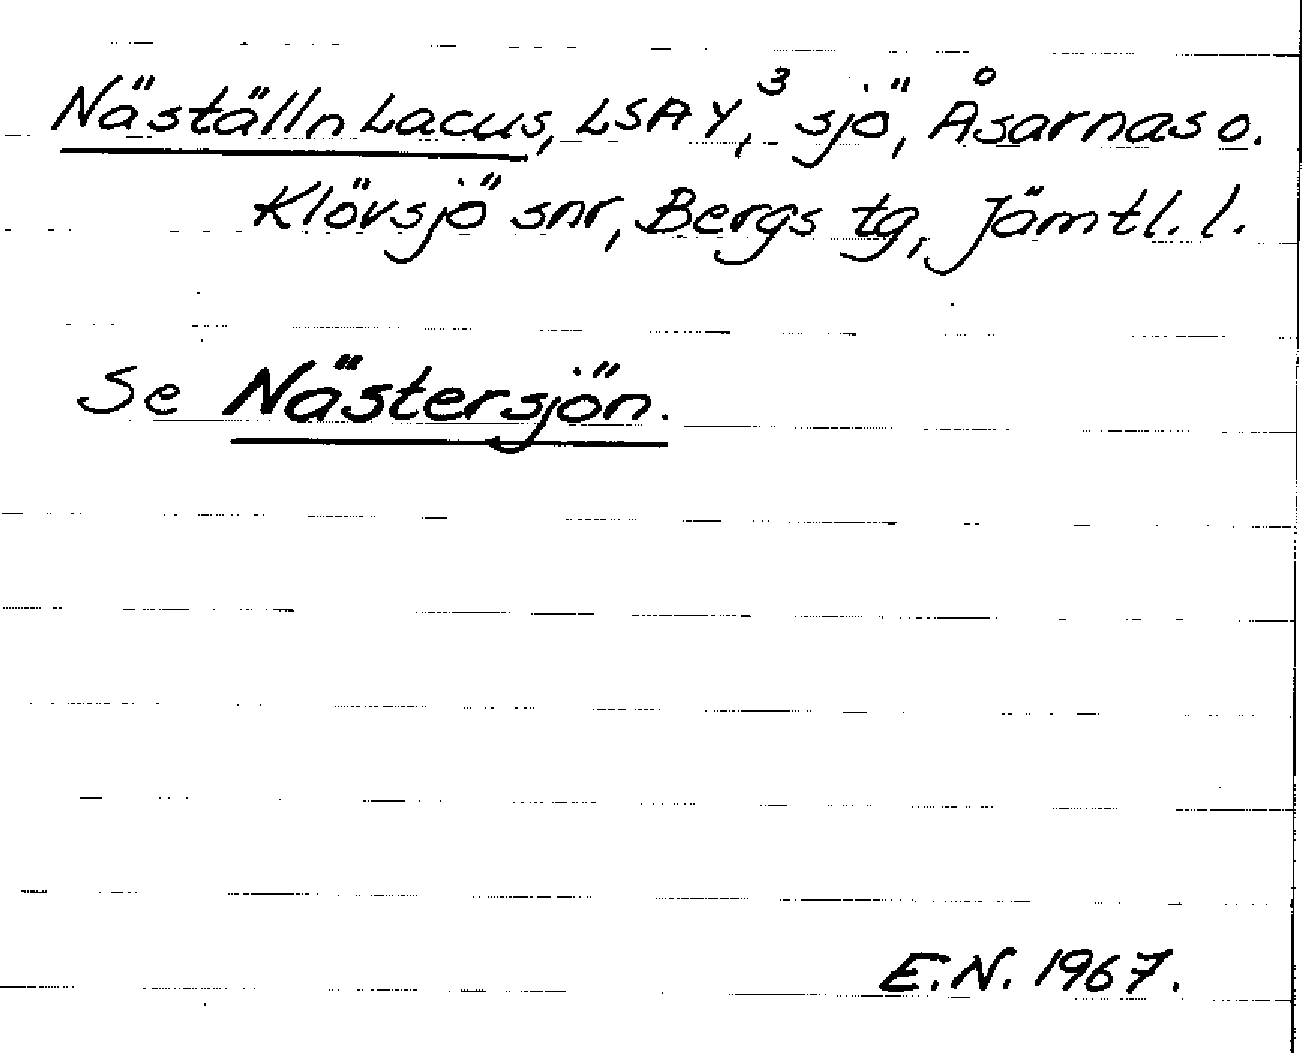 Näställn Lacus, LSA Y,³ sjö, Åsarnas o.
Klövsjö snr, Bergs tg, Jämtl. l.
Se Nästersjön.
E.N. 1967.